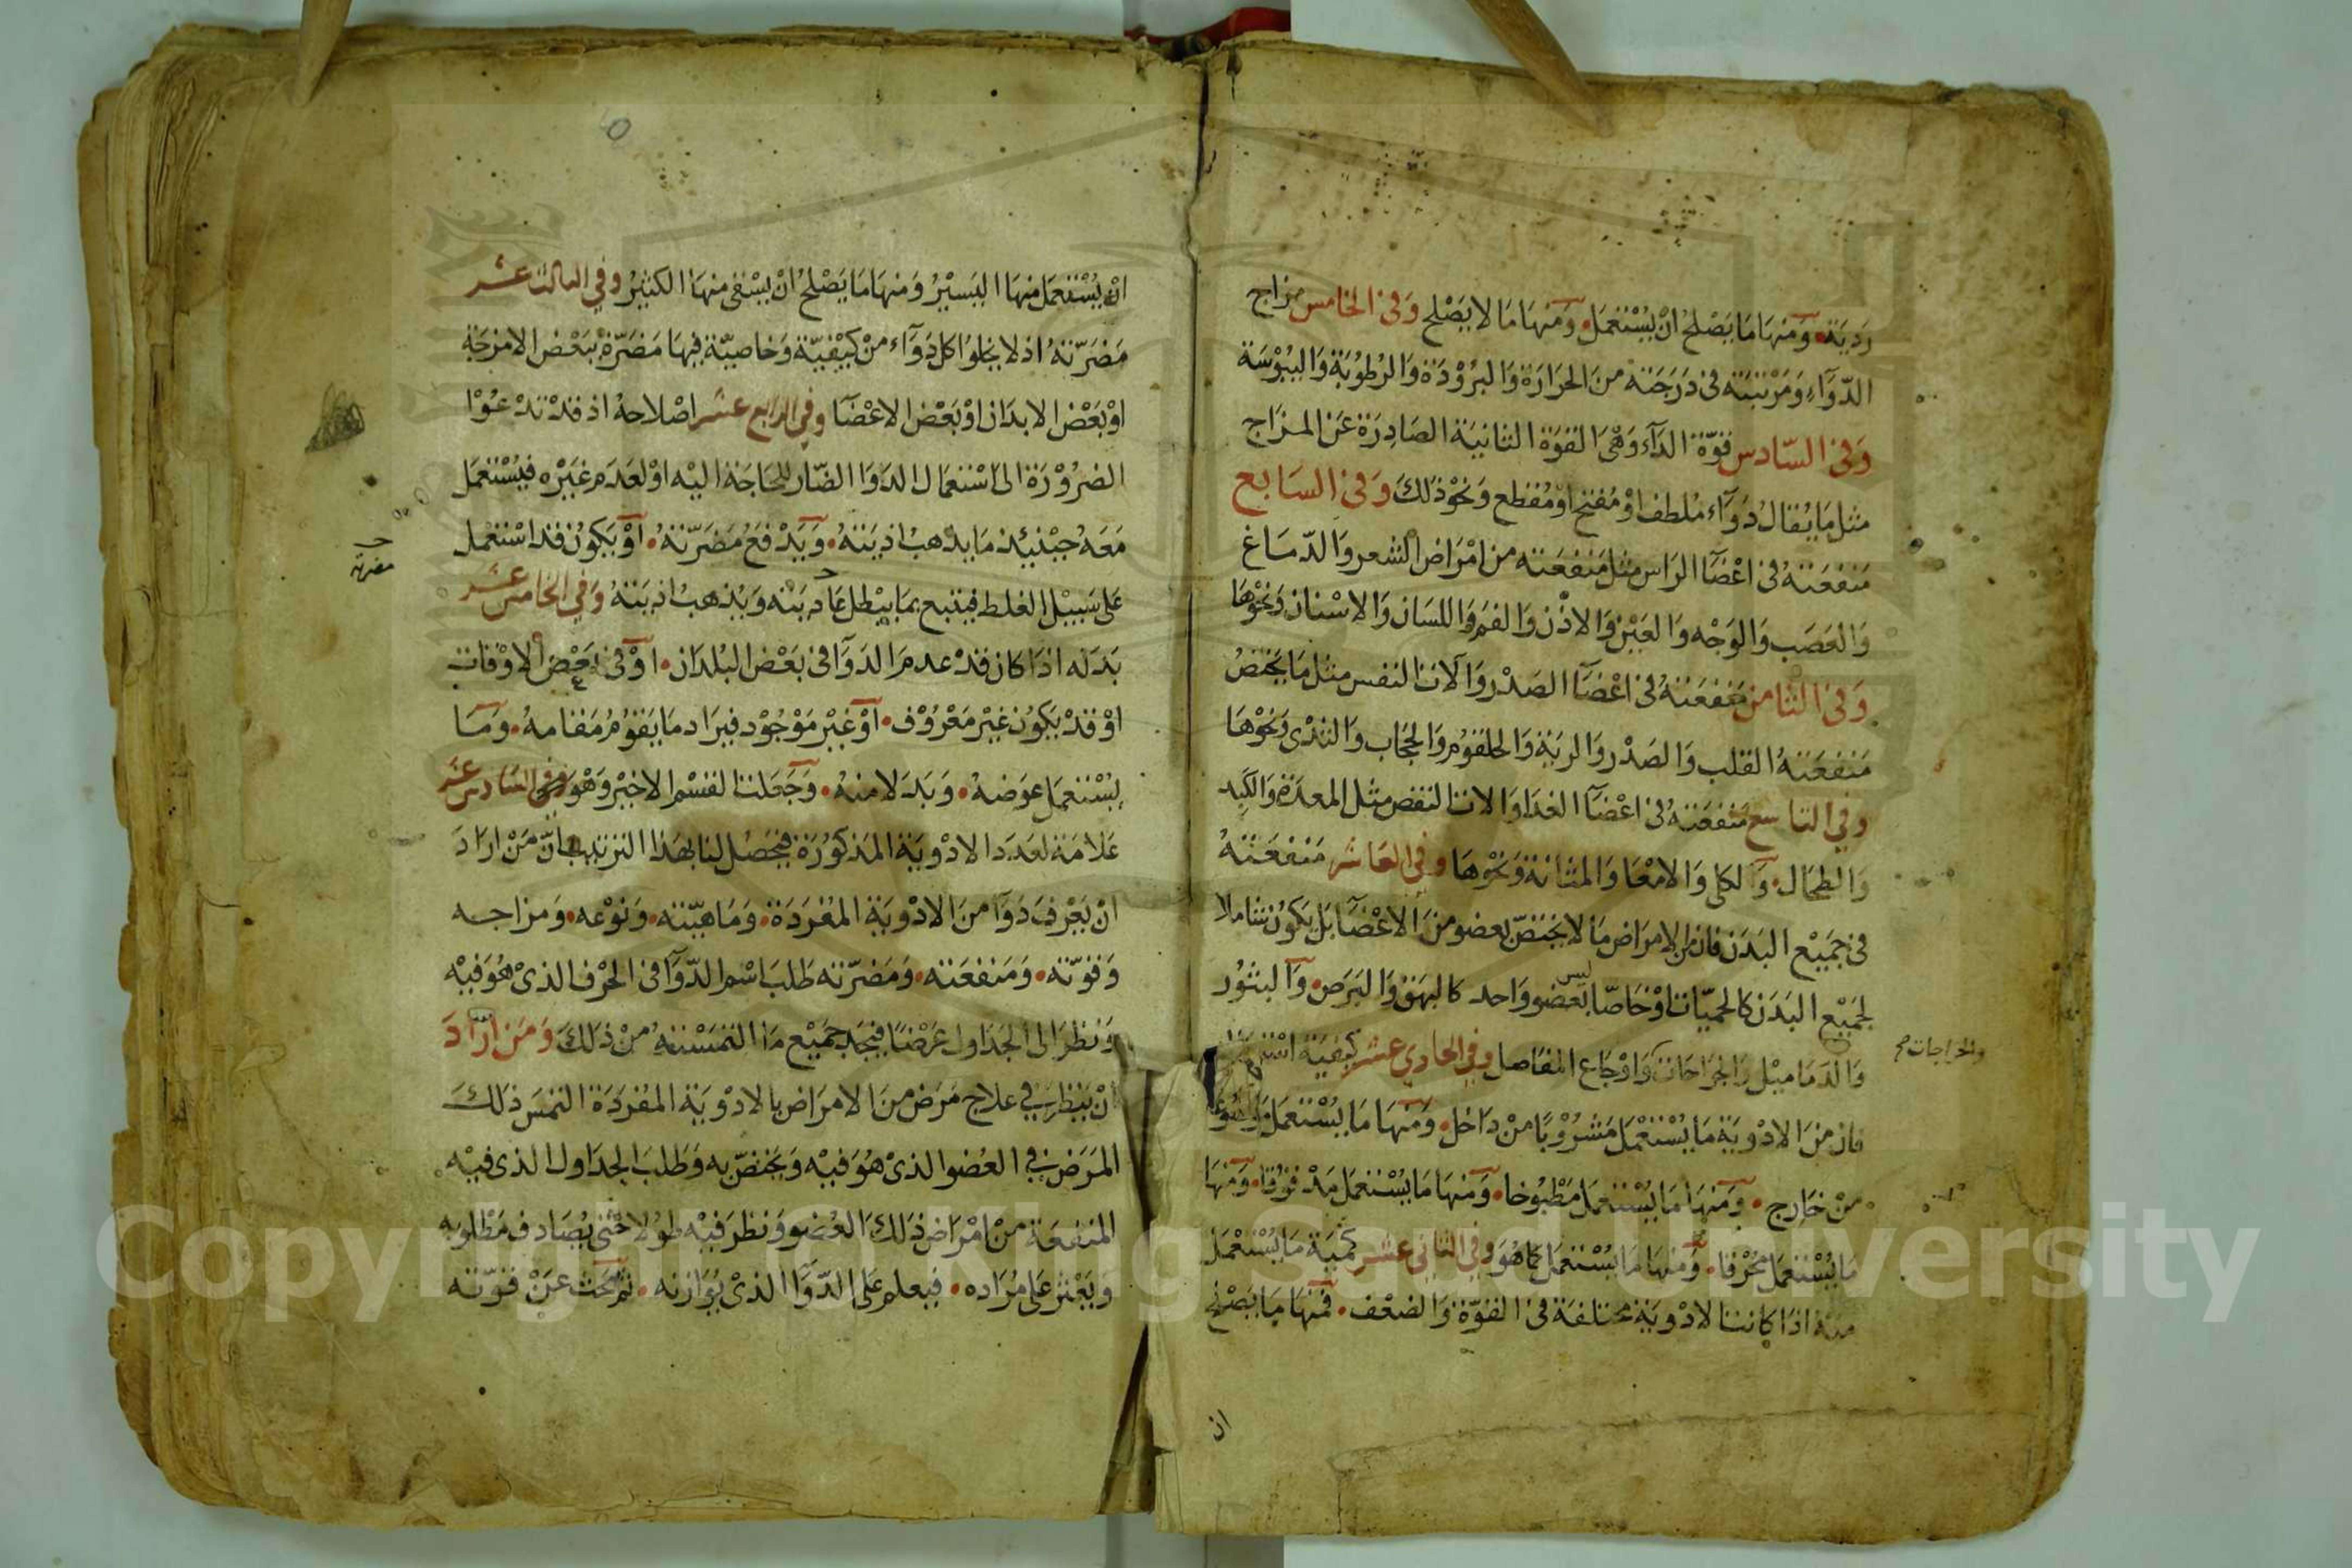 رَديَة • وَمنهَا مَا يَصْلحُ انْ يُسْتعمَل • وَمنهَا مَا لا يَصْلح وَفى الخامس مزاج
الدّوَآءِ وَمَرْتبَته فى دَرَجَته منَ الحَرَارَة وَالبرُوْدَة وَالرُطوُبَة وَاليبُوْسَة
وَفى السّادس قوّة الدَآء وَهْىَ القوَة الثانيَة الصَادِرَة عَن المزَاج
مثل مَا يُقالُ دُوَآء مُلطف اوْ مُفتح اوْ مُقطع وَنحْوْ ذلكَ وَفى السَابع
مَنفعَتهُ فى اعْضَآ الرَاس مثل مَنفعَته من امْرَاض الشعر وَالدّمَاغ
وَالعَصَب وَالوَجْه وَالعَيْن وَالاذْن وَالفم وَاللسَان وَالاسْنان وَنحْوْهَا
وَفى الثامن مَنفعَتهُ فى اعْضَآ الصَدْر وَآلات النفس مثل مَا يَختصُ
مَنفعَتهُ القلب وَالصَدْر وَالريَة وَالحلقوُم وَالحجَاب وَالثدْى وَنحْوْهَا
وفي التاسع مَنفعَتهُ فى اعْضَآ الغدَا وَالات النفض مثل المعدَة وَالكَبِد
وَالطحَال • وَالكلى وَالامْعَا وَالمثانة وَنحْوْهَا وفي العَاشر مَنفعَتهُ
فى جمَيْع البَدَن فان من الامرَاض مَا لا يَختصّ بعضو منَ الاعْضَآ بَل يَكوُن شاملا
لجَميْع البَدَن كالحميّات اوْ خَاصّا ليس بعضو وَاحد كالبهَق وَالبَرَص • وَالبثوُر
وَالدَمَاميْل وَالجرَاحَات وَاوْجَاع المفاصل وفي الحادي عشر كيْفيَة
والخراجات صح
فان منَ الادْويَة مَا يُسْتعْمَل مَشرُوْبًا منْ دَاخل • وَمنهَا مَا يسْتعمَل
منْ خَارج • وَمنهَا مَا يُسْتعمَل مَطْبُوخا • وَمنهَا مَا يُسْتعمَل مَدْقوْقا • وَمنهَا
مَا يُسْتعمَل مُحْرْقا • وَمنهَا مَا يُسْتعمَل كمَا هُوَ وفي الثاني عشر كمّيَة مَا يُسْتعْمَل
منهُ اذا كانت الادْويَة مختلفة فى القوّة وَالضعْف • فمنهَا مَا يَصْلح
ان
انْ يُسْتعمَل منهَا اليَسيْرُ وَمنهَا مَا يَصْلحُ انْ يسْقى منهَا الكثيْرُ وفي الثالث عشر
مَضَرّتهُ اذ لا يخلوُا كل دَوَآء منْ كيْفيّة وَخاصيّة فيهَا مَضَرّة ببَعْض الامْزجَة
اوْ بَعْض الابدَان اوْ بَعْض الاعْضَآ وفي الرابع عشر اصْلاحهُ اذ قدْ تدْعُوْا
الضرُوْرَة الى اسْتعمَال الدَوَا الضّار للحَاجَة اليْه اوْ لعَدَم غيَرْه فيُسْتعمَل
مَعَهُ حيْنئِذ مَا يذهبُ اذيتهُ • وَيَدْفعُ مَضَرّتهُ • اوْ يَكوُن قد اسْتعْمل
مضرته
عَلى سَبيْل الغلط فيتبع بمَا يبْطل عَاديَته وَيُذهبُ اذيتهُ وَفي الخامس عشر
بَدَله اذا كان قدْ عدمَ الدَوَآ فى بَعْض البُلدَان • اوْ فى بَعْض الاوْقات
اوْ قدْ يَكوُن غيْر مَعْرُوْف • اوْ غيْر مَوْجُوْد فيرَاد مَا يَقوُمُ مَقامهُ • وَمَا
يسْتعمَل عوَضهُ • وَبَدَلا منهُ • وَجَعَلت القسْم الاخيْر وَهْوَ في السَادس عشر
عَلامَة لعَدَد الادْويَة المَذكوُرَة فيَحصُل لنا بهَذا الترتيب انّ مَنْ ارَادَ
انْ يَعْرفَ دَوَآ منَ الادْويَة المفرَدَة • وَمَاهيّته • وَنوْعه • وَمزاجه
وَقوّته • وَمَنفعَته • وَمَضرّته طَلبَ اسْم الدّوَآ فى الحرْف الذىْ هُوَ فيْه
وَنظرَ الى الجَدَاول عَرْضًا فيَجد جميْع مَا التمسْته منْ ذلكَ وَمَن ارَادَ
انْ يَنظرَ في علاج مَرَض منَ الامرَاض بالادْويَة المفرَدَة التمسَ ذلكَ
المَرَض في العُضو الذىْ هُوَ فيْه وَيختصّ به وَطَلبَ الجدَاول الذى فيْه
المنفعَة منْ امْرَاض ذلكَ العُضو وَنظرَ فيْه طوُلا حَتى يُصَادف مَطْلوبه
وَيَعْثر عَلى مُرَاده • فيعلم عَلى الدّوَآ الذىْ يُوَازنه • ثمّ يَبحَث عَنْ قوّته
Copyright © King Saud University